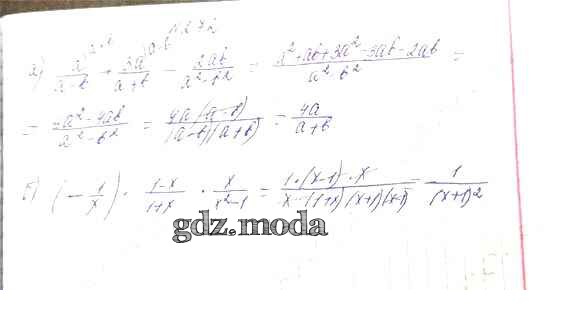 №272
а) a^{a+b}/(a-b) + 3a^{a-b}/(a+b) - 2ab/(a²-b²) = (a²+ab+3a²-3ab-2ab)/(a²-b²) =
= (4a²-4ab)/(a²-b²) = 4a(a-b)/((a-b)(a+b)) = 4a/(a+b)
б) (-1/x) · (1-x)/(1+x) · x/(x²-1) = (1·(x-1)·x)/(x·(1+x)(x+1)(x-1)) = 1/(x+1)²
gdz.moda